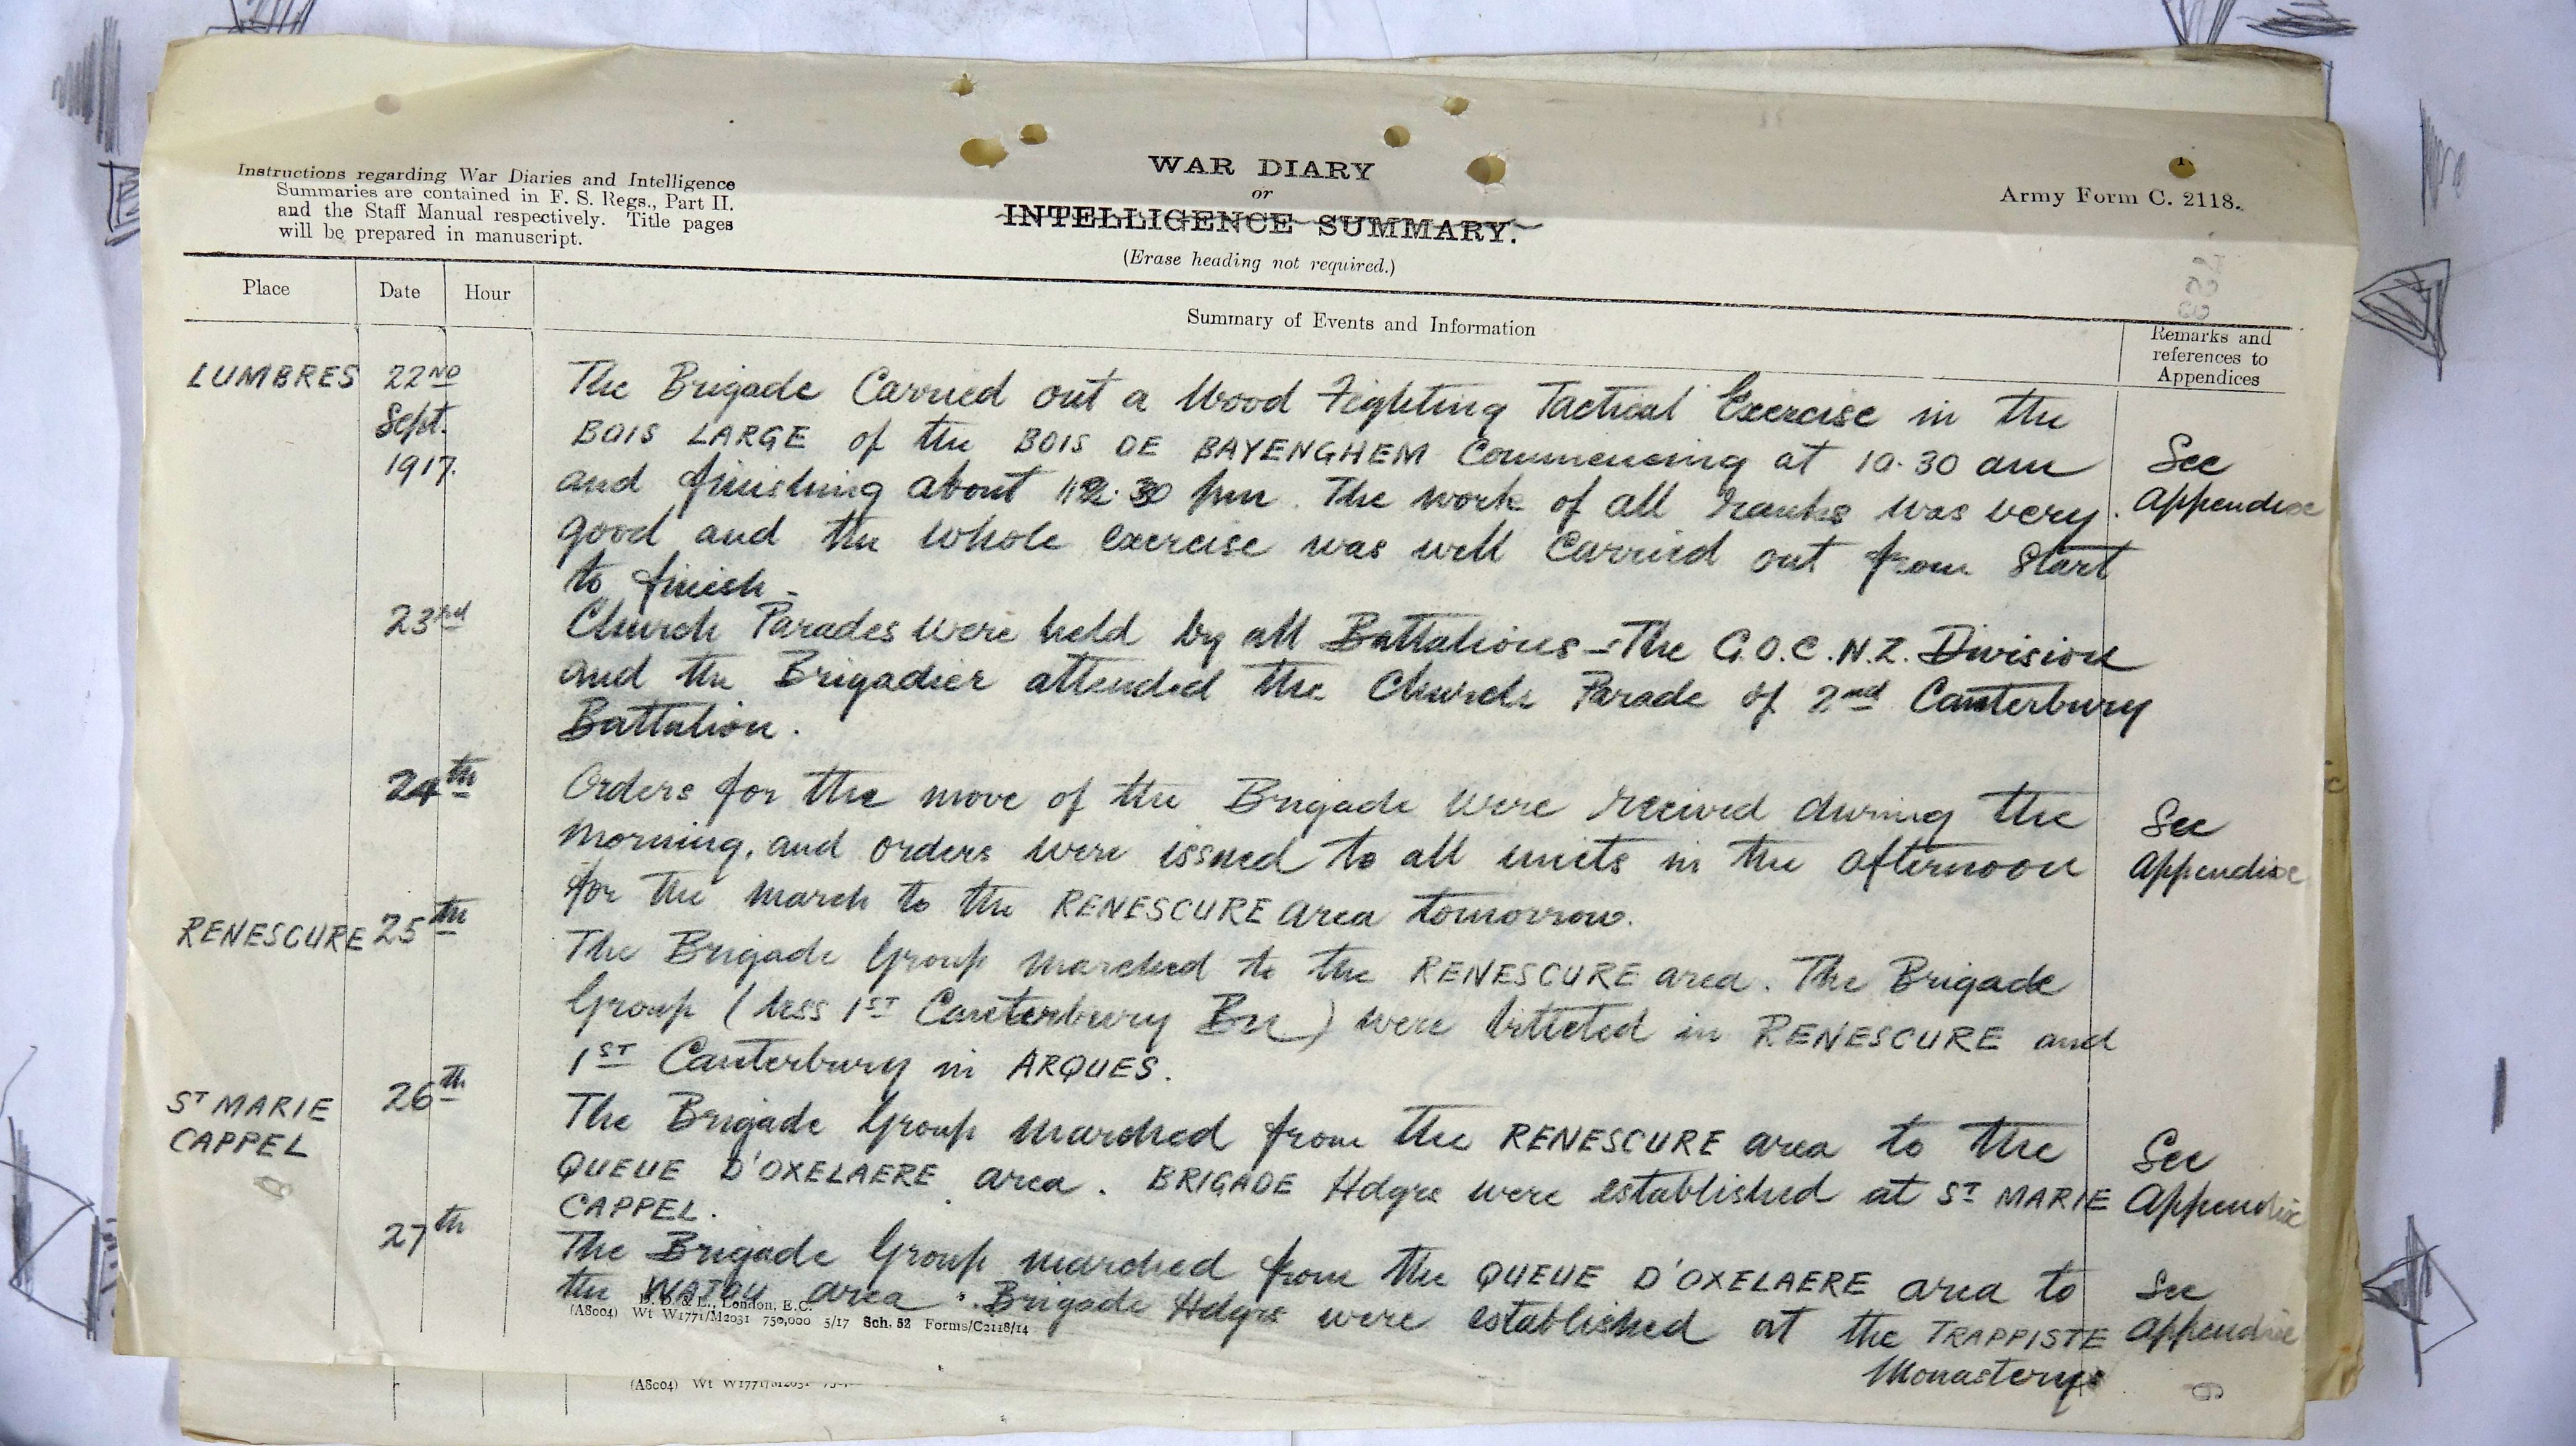 Instructions regarding War Diaries and Intelligence
Summaries are contained in F. S. Regs., Part II.
and the Staff Manual respectively. Title pages
will be prepared in manuscript.
WAR DIARY
or
INTELLIGENCE SUMMARY.
(Erase heading not required.)
Army Form C. 2118.
Place Date Hour Summary of Events and Information Remarks and
references to
Appendices
LUMBRES 22ND The Brigade Carried out a Wood Fighting Tactical Exercise in the
Sept. BOIS LARGE of the BOIS DE BAYENGHEM Commencing at 10.30 am See
1917. and finishing about 12.30 pm. The work of all ranks was very Appendix
good and the whole exercise was well carried out from Start
to finish -
23rd Church Parades were held by all Battalions - The G.O.C. N.Z. Division
and the Brigadier attended the Church Parade of 2nd Canterbury
Battalion.
24th Orders for the move of the Brigade were received during the See
morning, and orders were issued to all units in the afternoon Appendix
for the march to the RENESCURE area tomorrow.
RENESCURE 25th The Brigade Group marched to the RENESCURE area. The Brigade
Group (less 1ST Canterbury Bn) were billeted in RENESCURE and
1ST Canterbury in ARQUES.
ST MARIE 26th The Brigade Group marched from the RENESCURE area to the See
CAPPEL QUEUE D'OXELAERE area. BRIGADE Hdqrs were established at ST MARIE Appendix
CAPPEL.
27th The Brigade Group marched from the QUEUE D'OXELAERE area to See
the WATOU area. Brigade Hdqrs were established at the TRAPPISTE Appendix
Monastery
D. D. & L., London, E.C.
(A8004) Wt W1771/M2031 750,000 5/17 Sch. 52 Forms/C2118/14
(A8004) Wt W1771/M2031